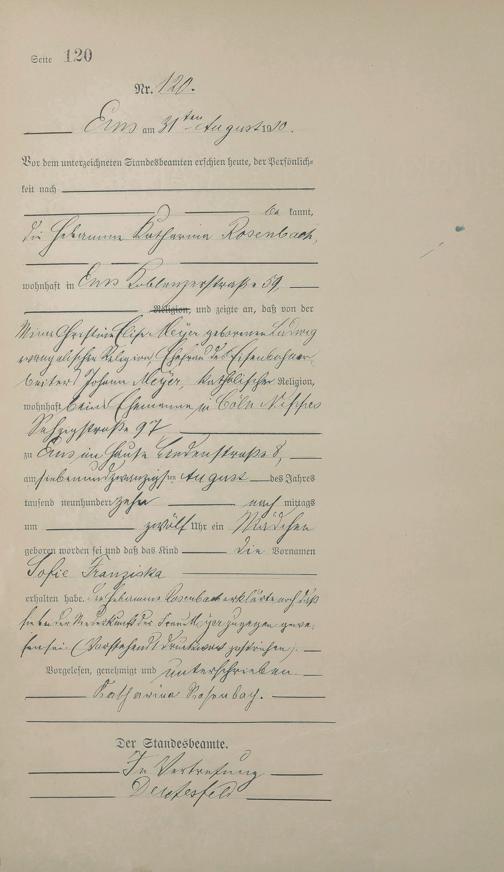 Seite 120
Nr. 120.
Ems am 31ten August 1910.
Vor dem unterzeichneten Standesbeamten erschien heute, der Persönlich-
keit nach
be kannt,
die Hebamme Katharina Rosenbach,
wohnhaft in Ems Koblenzerstraße 59,
Religion, und zeigte an, daß von der
Elise Meyer geborenen Ludwig
evangelischer Religion, Ehefrau des Eisenbahnar-
beiters Johann Meyer, katholischer Religion,
wohnhaft beim Ehemanne in Cöln Nippes
97
zu Ems im Hause Lindenstraße 8,
am siebenundzwanzigsten August des Jahres
tausend neunhundert zehn nach mittags
um zwölf Uhr ein Mädchen
geboren worden sei und daß das Kind die Vornamen
Sofie Franziska
erhalten habe. Die Hebamme Rosenbach erklärte noch daß
sie bei der Niederkunft der Frau Meyer zugegen gewe-
sen sei. (Vorstehend 1 Druckwort gestrichen).
Vorgelesen, genehmigt und unterschrieben.
Katharina Rosenbach.
Der Standesbeamte.
In Vertretung